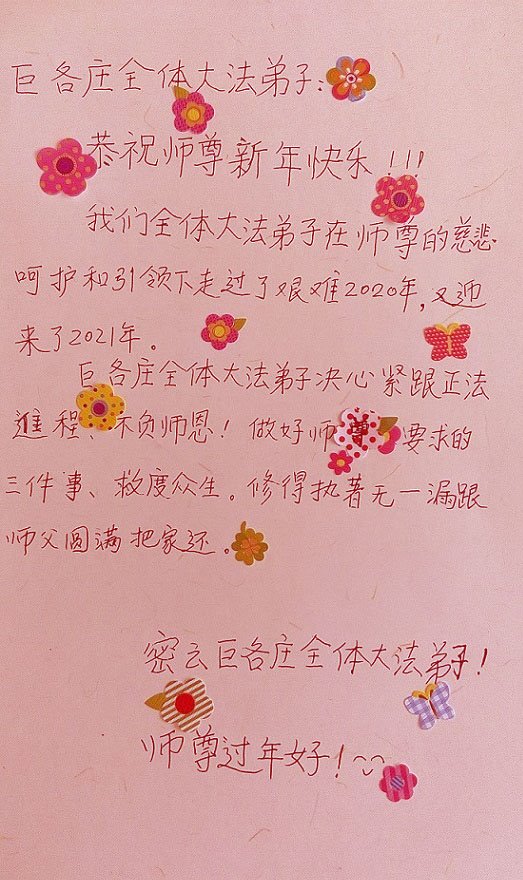 巨各庄全体大法弟子:
恭祝师尊新年快乐!!!
我们全体大法弟子在师尊的慈悲
呵护和引领下走过了艰难2020年,又迎
来了2021年。
巨各庄全体大法弟子决心紧跟正法
進程、不负师恩!做好师尊要求的
三件事、救度众生。修得执著无一漏跟
师父圆满把家还。
密云巨各庄全体大法弟子!
师尊过年好!